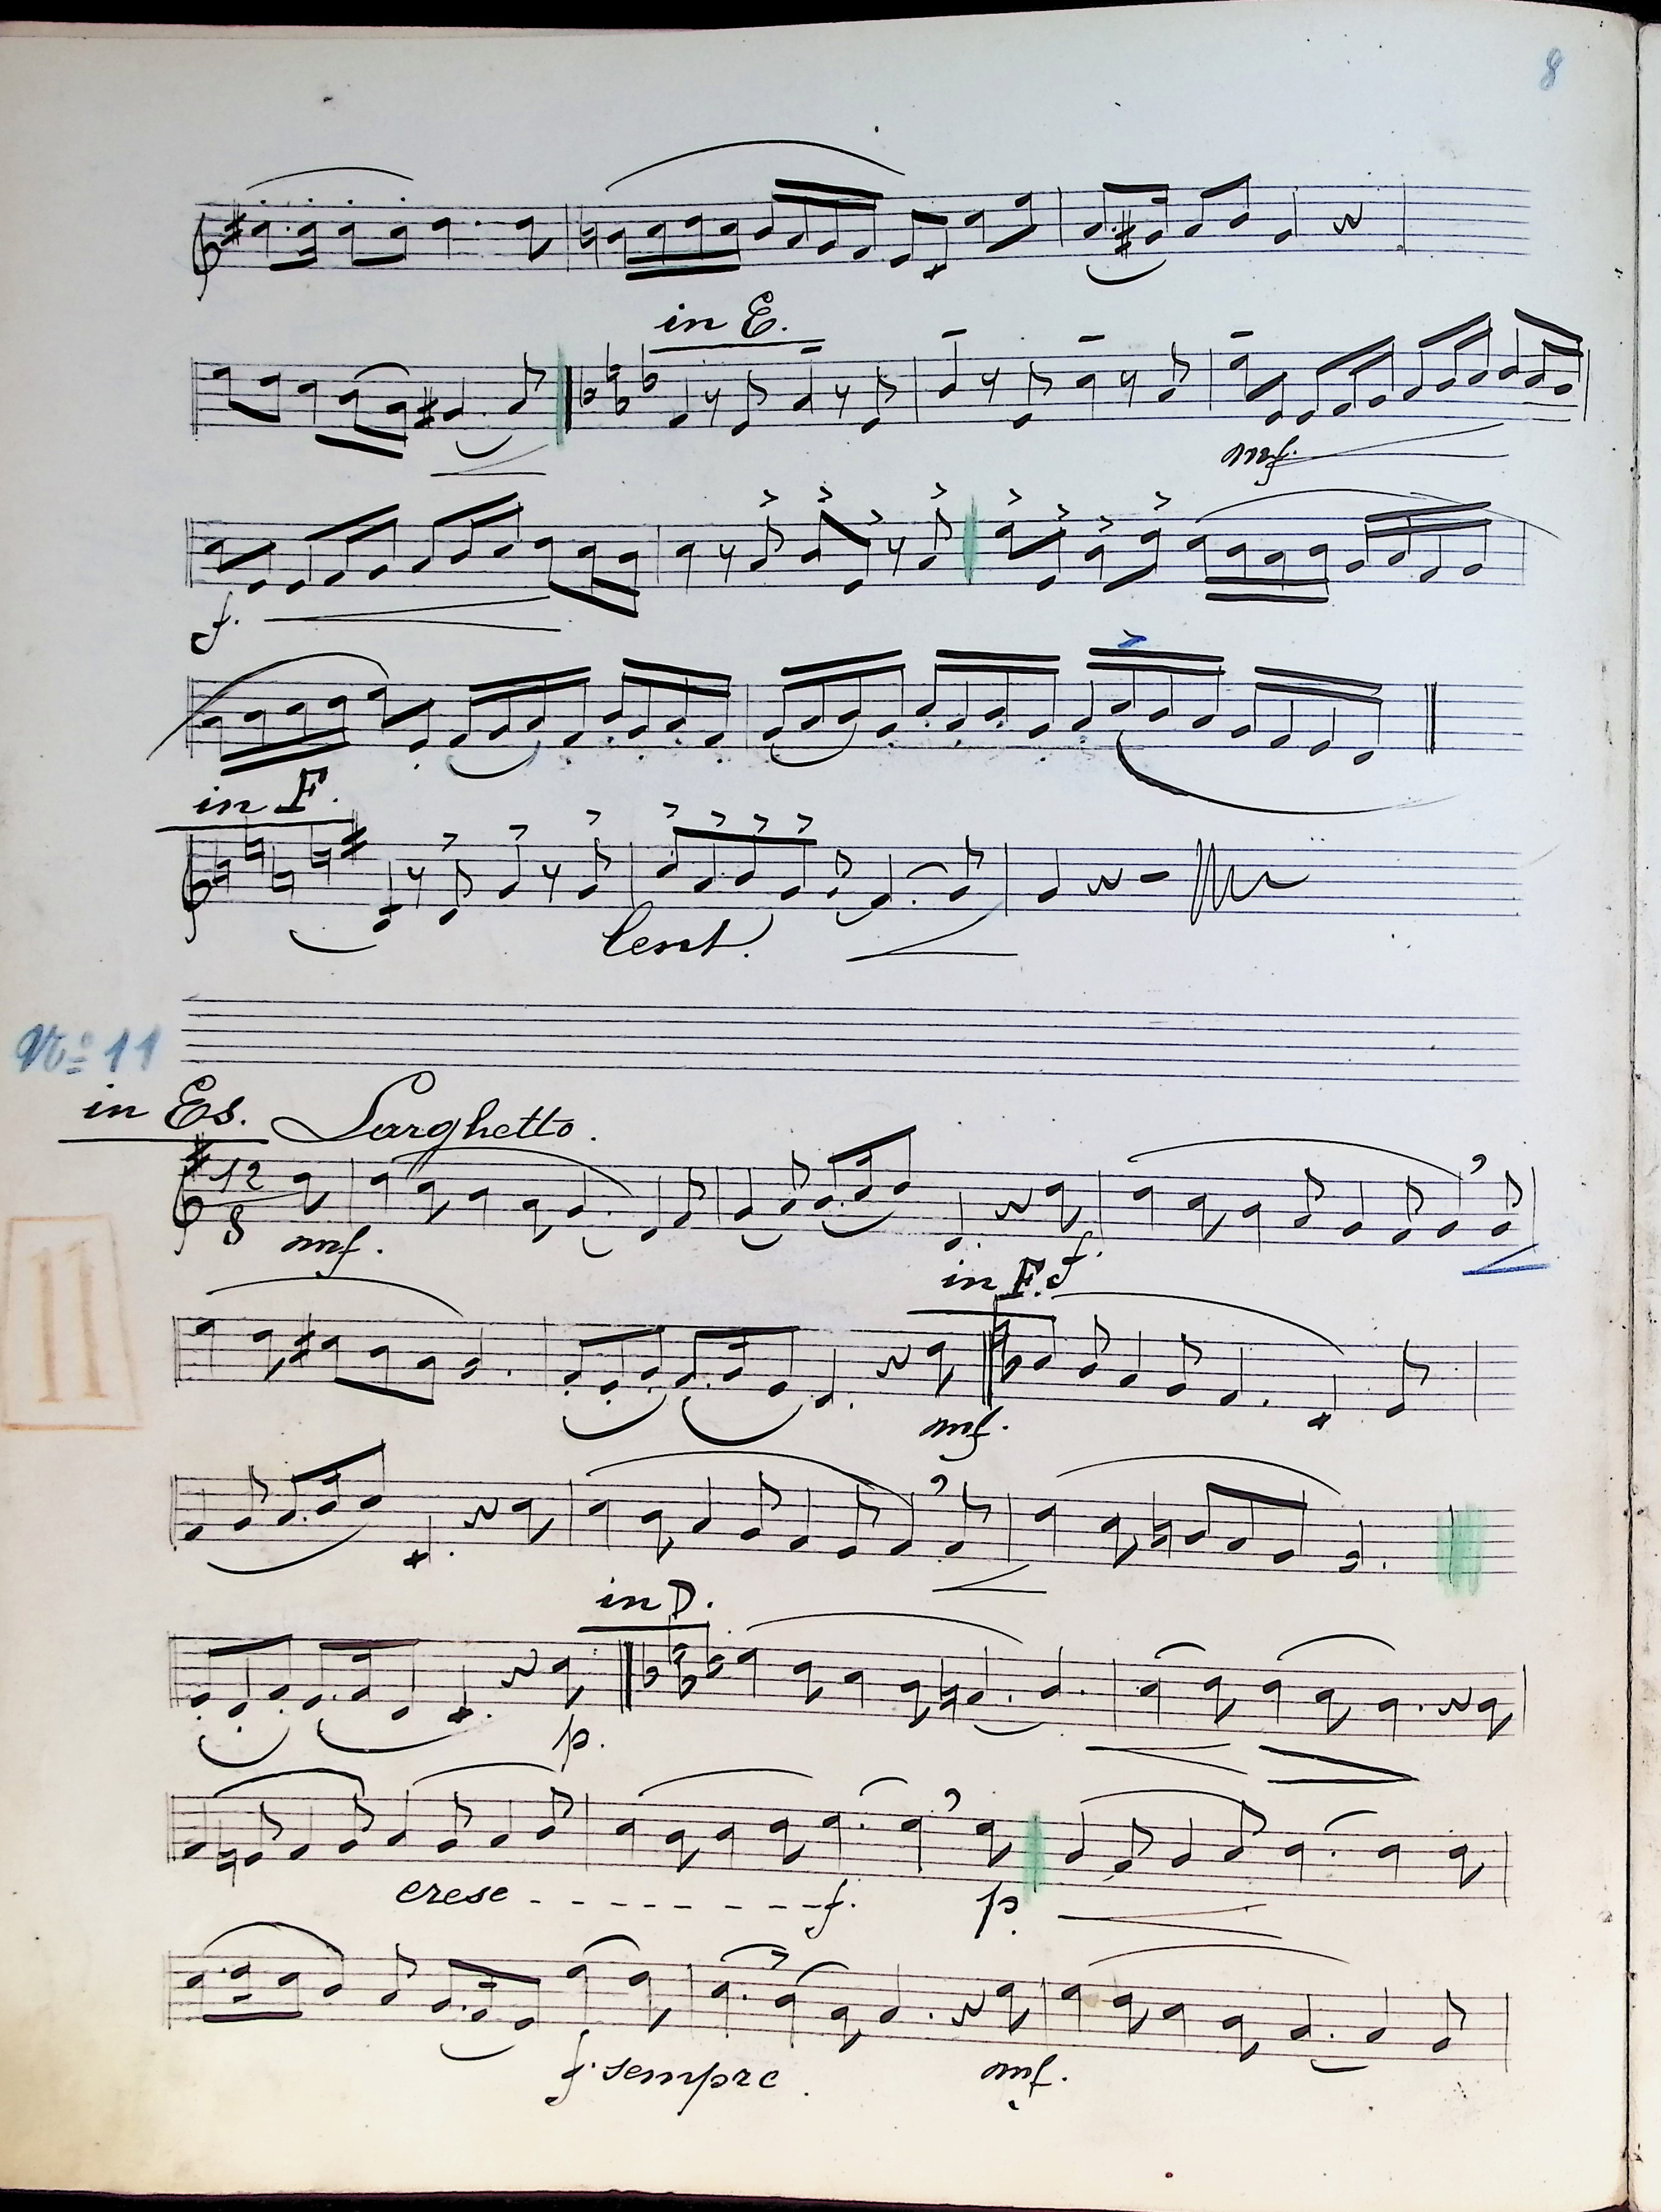 8
in E.
mf.
f.
in F.
lent.
No 11
in Es. Larghetto.
12
8
mf. f.
11
in F.
mf.
in D.
p.
cresc - - - - - - - - f. p.
f. sempre. mf.